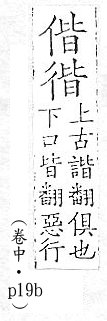 偕
上古諧翻俱也
下口皆翻惡行
(卷中・p19b)